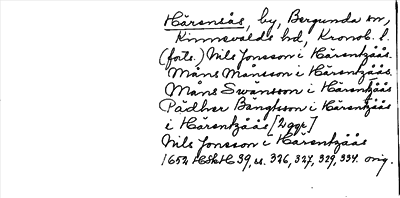 Häransås, by, Bergunda sn,
Kinnevalds hd, Kronob. l.
(forts.) Nils Jonsson i Härentzåås.
Måns Månsson i Härentzåås.
Måns Swänsson i Härentzåås
Pädher Bängtsson i Härentzåås
i Härentzåås [2 ggr]
Nils Jonsson i Härentzåås
1652 HskH 39, s. 326, 327, 329, 334. orig.